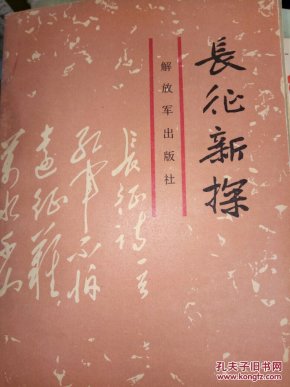 長征新探
解放军出版社
长征诗一首
红军不怕
远征难
万水千山
孔夫子旧书网
www.kongfz.com